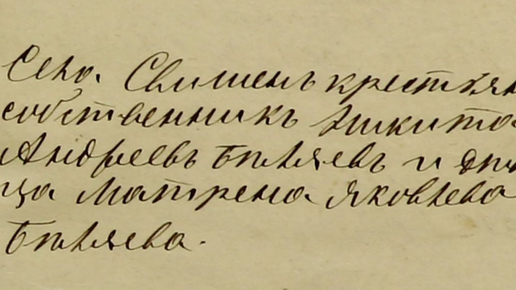 Село. Свишень крестьян
собственникъ Никита
Андреевъ Бѣляевъ и дѣви
ца Матрена Яковлева
Бѣляева.